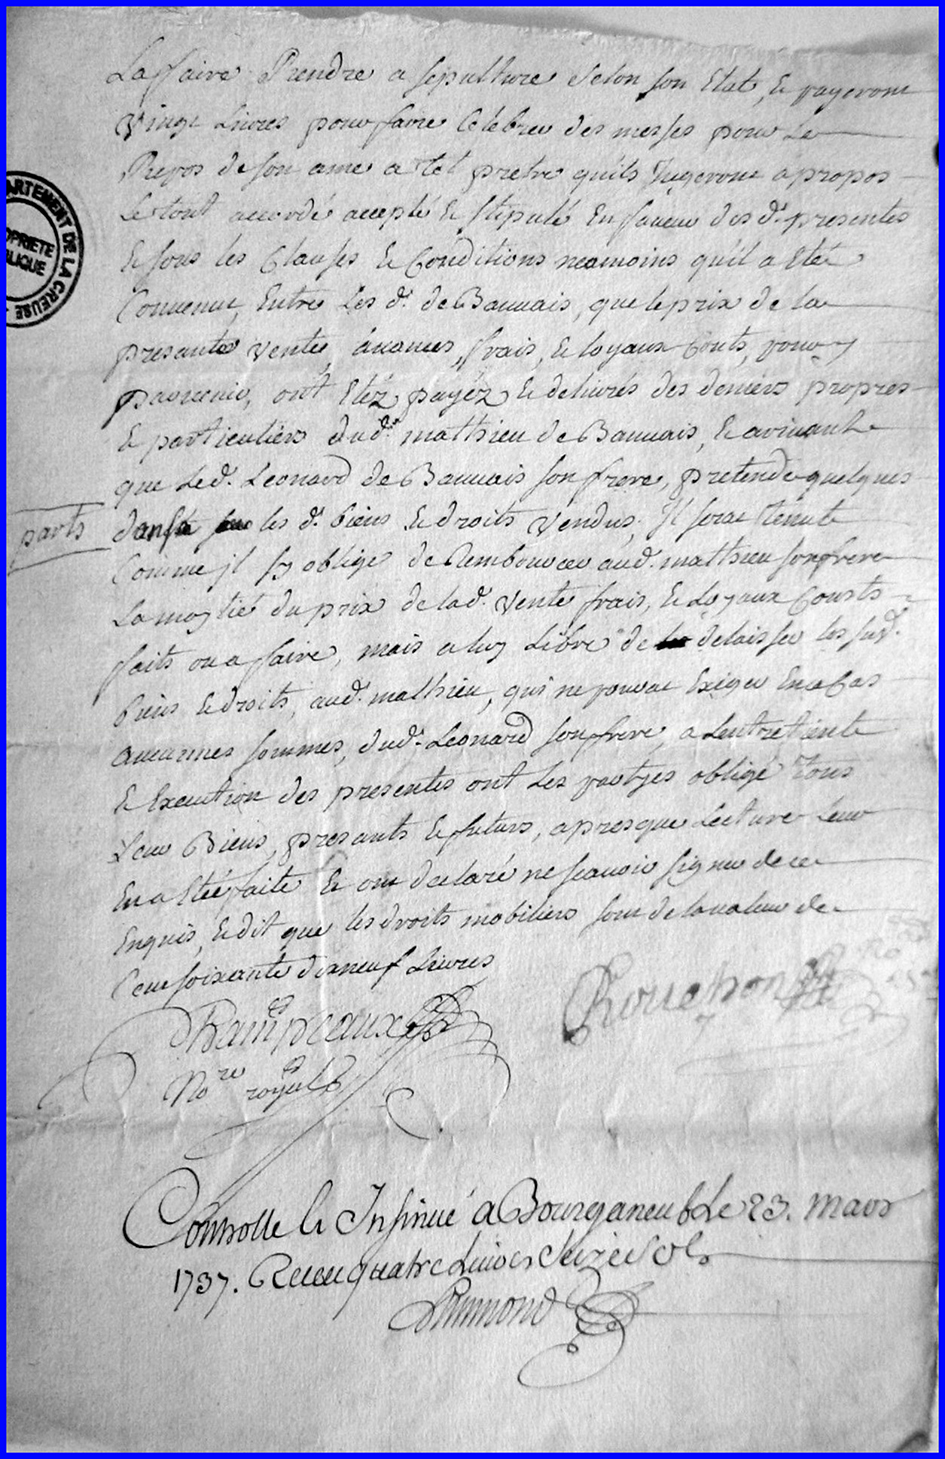 La faire Prendre a sepulture selon son Etat, & payeront
Vingt Livres pour faire Celebrer des messes pour Le
Repos de son ame a tel pretre qu'ils Jugeront apropos
Le tout accordé accepté & stipulé En faveur des d. presentes
& sous les Clauses & Conditions neamoins qu'il a Eté
Convenu, Entre Les d. de Bauvais, que le prix de la
presante vente, avances, frais, & loyaux Couts, pour y
parvenir, ont Etéz payéz & delivrés des deniers propres
& particuliers dud. mathieu de Bauvais, & avenant
que Led. Leonard de Bauvais son frere, pretende quelques
parts
dans les d. biens & droits vendus, Jl sera tenut
Comme jl sy oblige de Rembourcer aud. mathieu son frere
La moytié du prix de lad. Vente frais, & Loyaux Cousts
faits ou a faire, mais a luy Libre de delaisser les sud.
biens & droits, aud. mathieu, qui ne pourat Exiger En ce Cas
aucunnes sommes, dud. Leonard son frere, a Lentretient
& Execution des presentes ont Les partyes obligé Tous
Leur Biens, presants & futurs, apres que Lecture Leur
En a Eté faite & ont declaré ne scavoir signer de ce
Enquis, & dit que les droits mobiliers sont de la valeur de
Cent soixante dixneuf Livres
Rouchon
Champeaux
No.re royal
Controlle & Insinué a Bourganeuf Le 23. Mars
1737. Receu quatre Livres Seize Sols
DEPARTEMENT DE LA CREUSE
PROPRIETE
PUBLIQUE